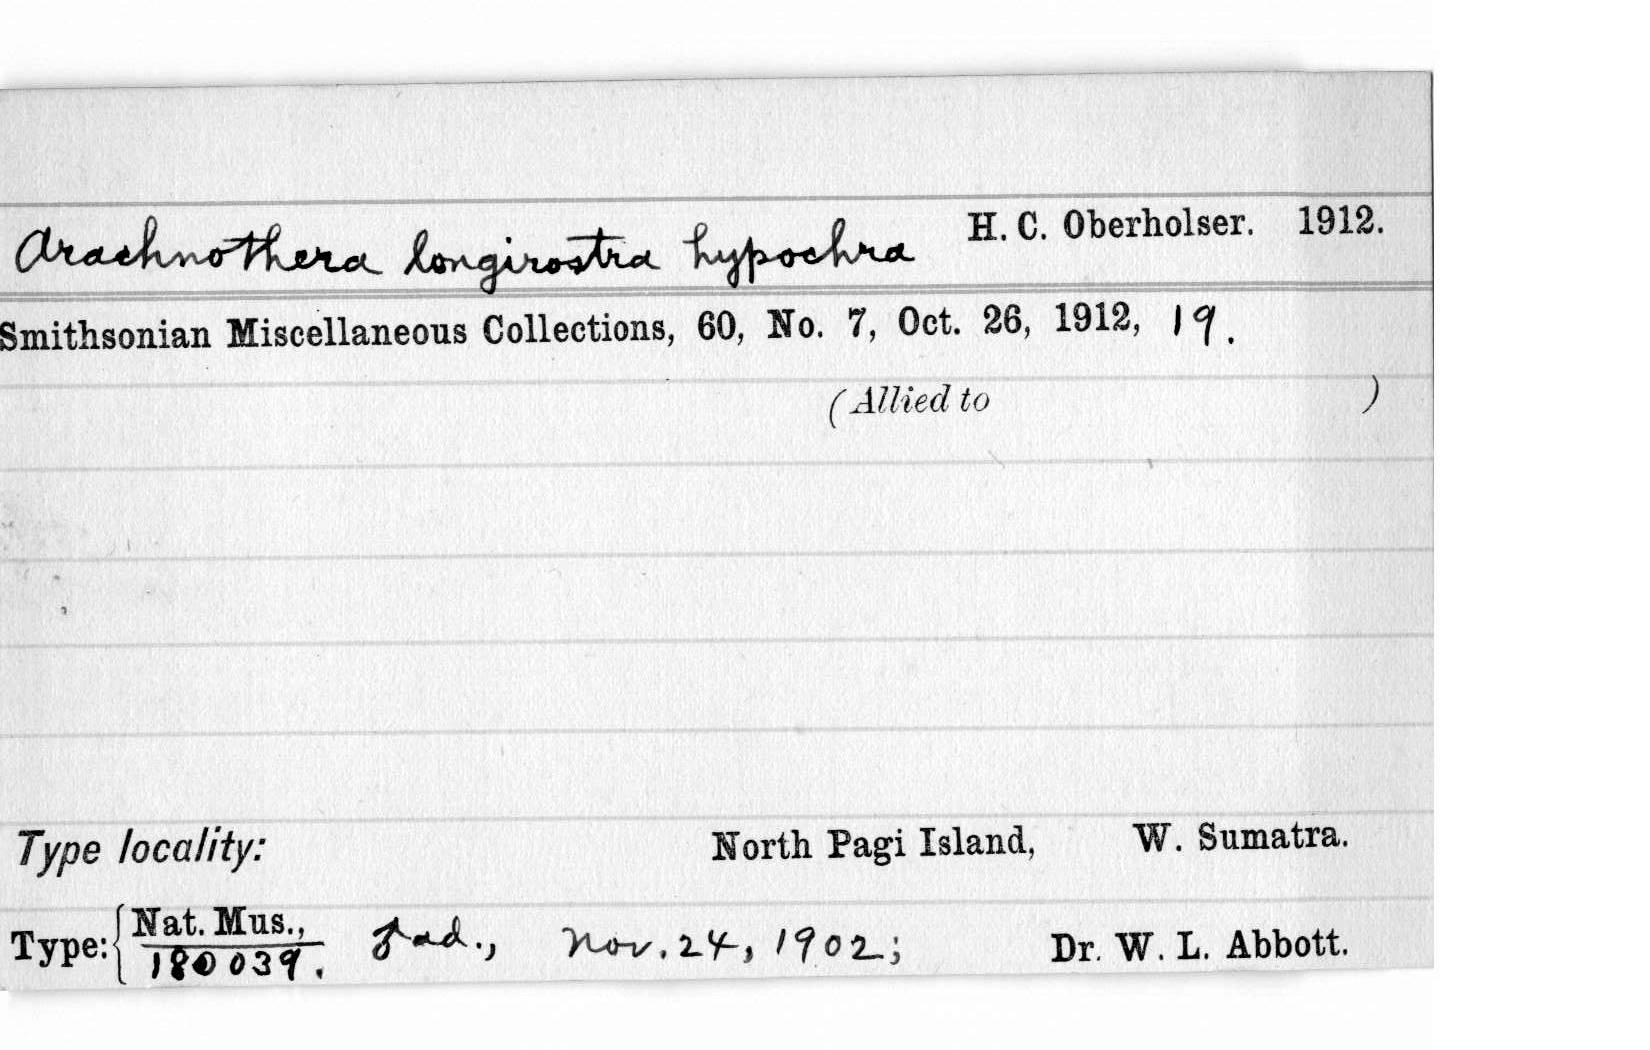 Arachnothera longirostra hypochra H. C. Oberholser. 1912.
Smithsonian Miscellaneous Collections, 60, No. 7, Oct. 26, 1912, 19.
(Allied to )
Type locality: North Pagi Island, W. Sumatra.
Type: { Nat. Mus., ad., Nov. 24, 1902; Dr. W. L. Abbott.
180039.